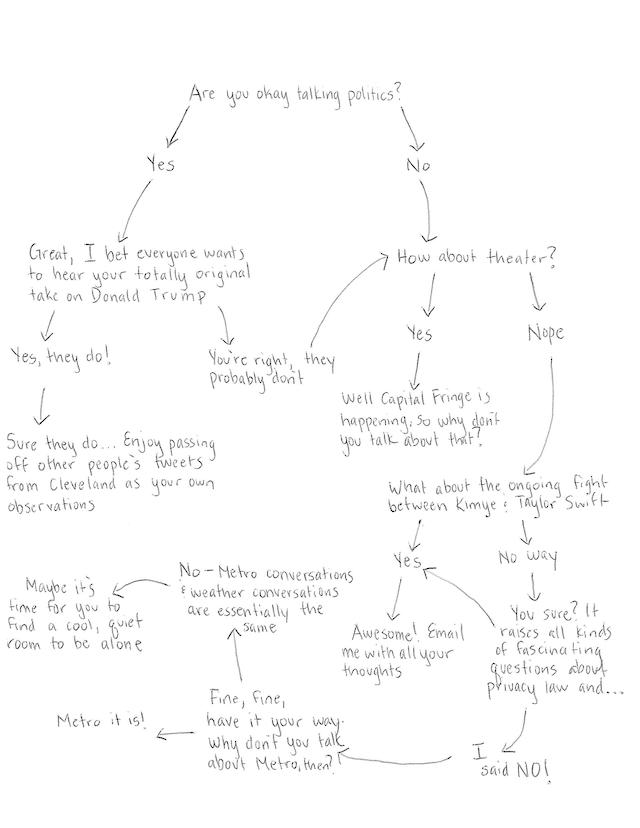 Are you okay talking politics?
Yes
No
Great, I bet everyone wants
to hear your totally original
take on Donald Trump
How about theater?
Yes, they do!
You're right, they
probably don't
Yes
Nope
Well Capital Fringe is
happening, so why don't
you talk about that?
Sure they do... Enjoy passing
off other people's tweets
from Cleveland as your own
observations
What about the ongoing fight
between Kimye & Taylor Swift
Yes
No way
Awesome! Email
me with all your
thoughts
You sure? It
raises all kinds
of fascinating
questions about
privacy law and...
I
said NO!
Fine, fine,
have it your way.
Why don't you talk
about Metro, then?
Metro it is!
No - Metro conversations
& weather conversations
are essentially the
same
Maybe it's
time for you to
find a cool, quiet
room to be alone